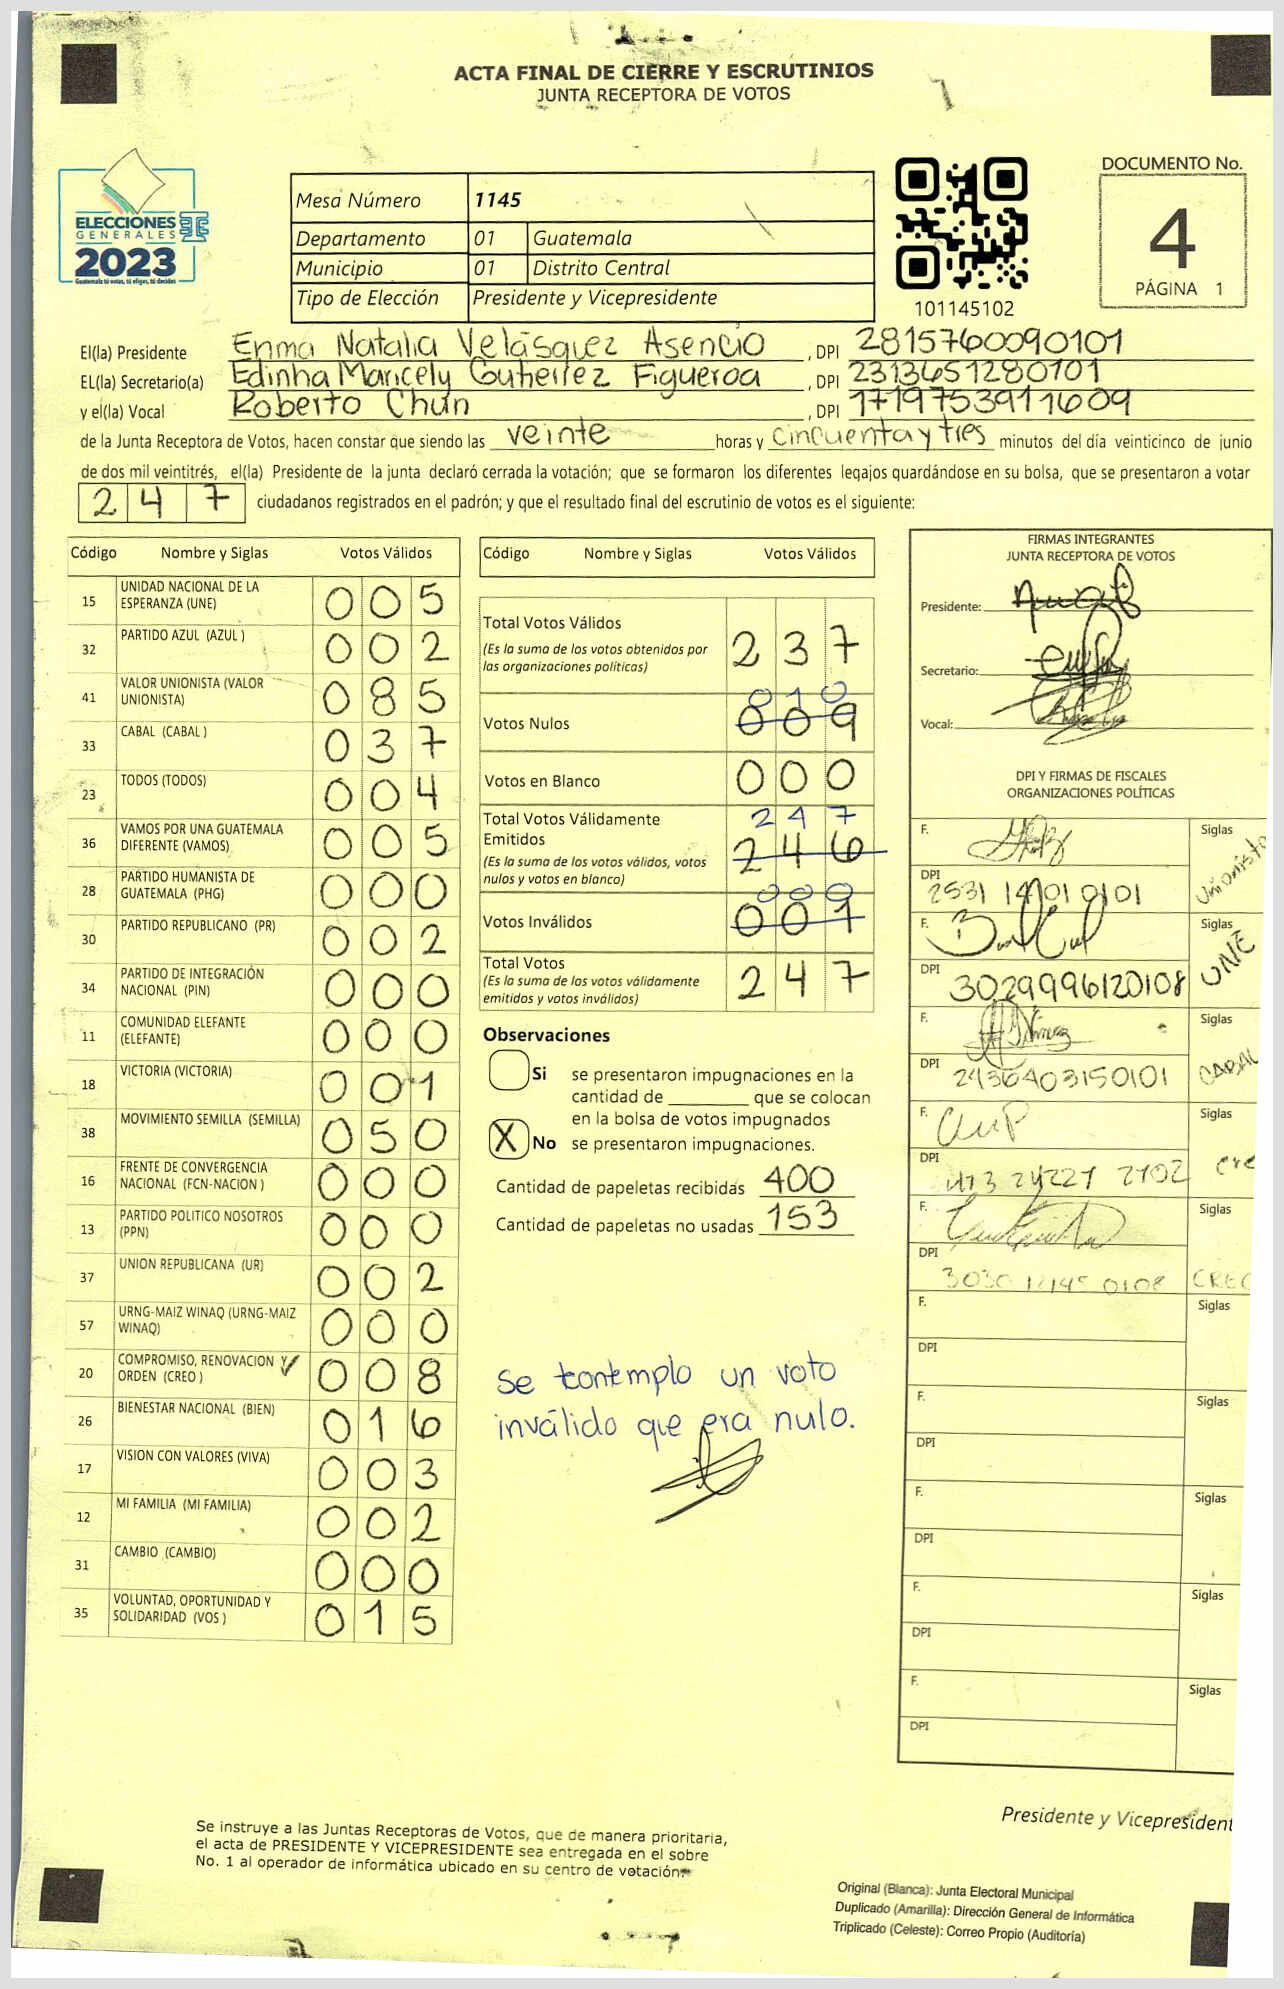 ACTA FINAL DE CIERRE Y ESCRUTINIOS
JUNTA RECEPTORA DE VOTOS
ELECCIONES
GENERALES
2023
Guatemala tú votas, tú eliges, tú decides
Mesa Número 1145
Departamento 01 Guatemala
Municipio 01 Distrito Central
Tipo de Elección Presidente y Vicepresidente
101145102
DOCUMENTO No.
4
PÁGINA 1
El(la) Presidente Enma Natalia Velásquez Asencio, DPI 2815760090101
EL(la) Secretario(a) Edinha Maricely Gutierrez Figueroa, DPI 2313651280101
y el(la) Vocal Roberto Chun, DPI 1719753911609
de la Junta Receptora de Votos, hacen constar que siendo las veinte horas y cincuenta y tres minutos del día veinticinco de junio
de dos mil veintitrés, el(la) Presidente de la junta declaró cerrada la votación; que se formaron los diferentes legajos quardándose en su bolsa, que se presentaron a votar
247 ciudadanos registrados en el padrón; y que el resultado final del escrutinio de votos es el siguiente:
Código Nombre y Siglas Votos Válidos
15 UNIDAD NACIONAL DE LA ESPERANZA (UNE) 005
32 PARTIDO AZUL (AZUL ) 002
41 VALOR UNIONISTA (VALOR UNIONISTA) 085
33 CABAL (CABAL ) 037
23 TODOS (TODOS) 004
36 VAMOS POR UNA GUATEMALA DIFERENTE (VAMOS) 005
28 PARTIDO HUMANISTA DE GUATEMALA (PHG) 000
30 PARTIDO REPUBLICANO (PR) 002
34 PARTIDO DE INTEGRACIÓN NACIONAL (PIN) 000
11 COMUNIDAD ELEFANTE (ELEFANTE) 000
18 VICTORIA (VICTORIA) 001
38 MOVIMIENTO SEMILLA (SEMILLA) 050
16 FRENTE DE CONVERGENCIA NACIONAL (FCN-NACION ) 000
13 PARTIDO POLITICO NOSOTROS (PPN) 000
37 UNION REPUBLICANA (UR) 002
57 URNG-MAIZ WINAQ (URNG-MAIZ WINAQ) 000
20 COMPROMISO, RENOVACION Y ORDEN (CREO ) 008
26 BIENESTAR NACIONAL (BIEN) 016
17 VISION CON VALORES (VIVA) 003
12 MI FAMILIA (MI FAMILIA) 002
31 CAMBIO (CAMBIO) 000
35 VOLUNTAD, OPORTUNIDAD Y SOLIDARIDAD (VOS ) 015
Código Nombre y Siglas Votos Válidos
Total Votos Válidos 237
(Es la suma de los votos obtenidos por
las organizaciones políticas)
010
Votos Nulos 009
Votos en Blanco 000
Total Votos Válidamente 247
Emitidos 246
(Es la suma de los votos válidos, votos
nulos y votos en blanco)
000
Votos Inválidos 001
Total Votos 247
(Es la suma de los votos válidamente
emitidos y votos inválidos)
Observaciones
Si se presentaron impugnaciones en la
cantidad de ________ que se colocan
en la bolsa de votos impugnados
X No se presentaron impugnaciones.
Cantidad de papeletas recibidas 400
Cantidad de papeletas no usadas 153
Se contemplo un voto
inválido que era nulo.
FIRMAS INTEGRANTES
JUNTA RECEPTORA DE VOTOS
Presidente:
Secretario:
Vocal:
DPI Y FIRMAS DE FISCALES
ORGANIZACIONES POLÍTICAS
F. Siglas
DPI Unionista
F. Siglas
DPI 3029996120108 UNE
F. Siglas
DPI 2436403150101 CABAL
F. Siglas
DPI
F. Siglas
DPI CREO
F. Siglas
DPI
F. Siglas
DPI
F. Siglas
DPI
F. Siglas
DPI
F. Siglas
DPI
Presidente y Vicepresident
Se instruye a las Juntas Receptoras de Votos, que de manera prioritaria,
el acta de PRESIDENTE Y VICEPRESIDENTE sea entregada en el sobre
No. 1 al operador de informática ubicado en su centro de votación.
Original (Blanca): Junta Electoral Municipal
Duplicado (Amarilla): Dirección General de Informática
Triplicado (Celeste): Correo Propio (Auditoría)